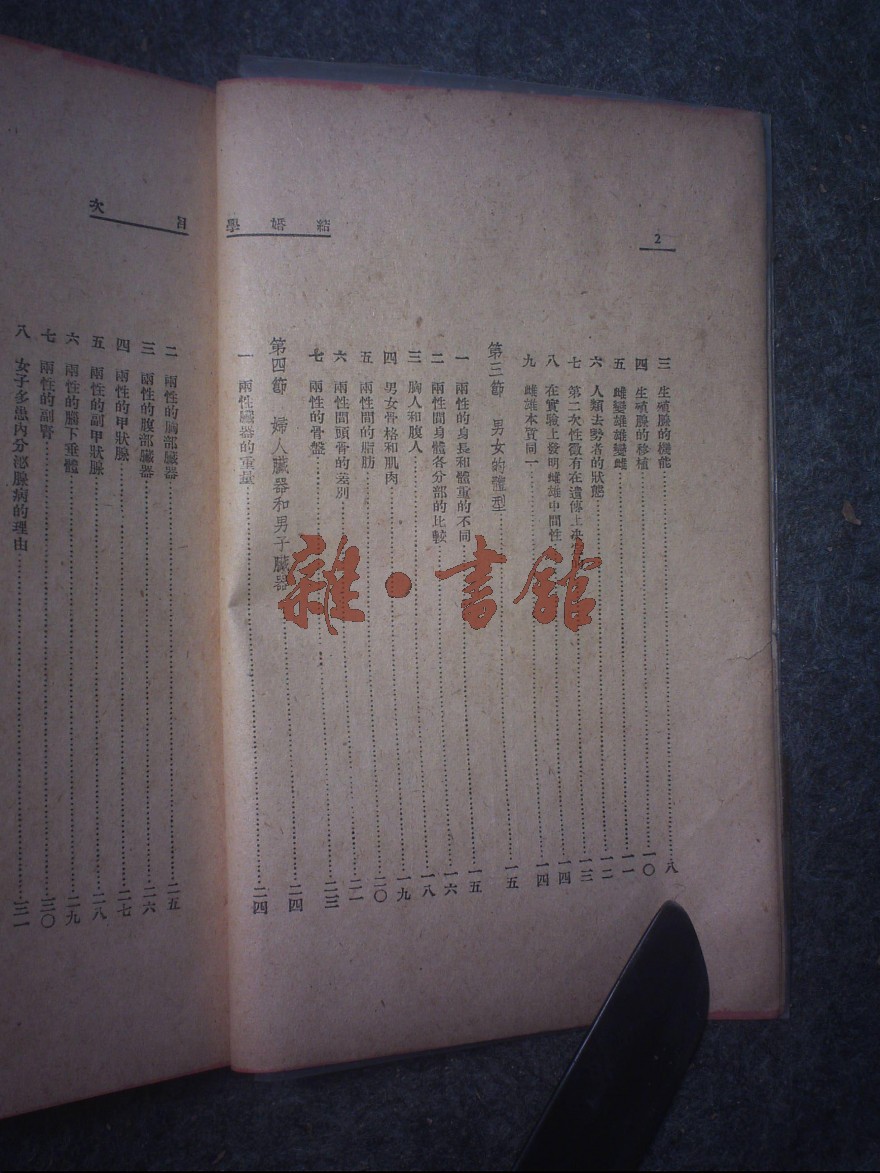 2
結婚學
三 生殖腺的機能……八
四 生殖腺的移植……一〇
五 雌變雄雄變雌……一一
六 人類去勢者的狀態……一二
七 第二次性徵有在遺傳上决……一三
八 在實驗上發明雌雄中間性……一四
九 雌雄本質同一……一四
第三節 男女的體型……一五
一 兩性的身長和體重的不同……一五
二 兩性間身體各分部的比較……一六
三 胸人和腹人……一八
四 男女骨格和肌肉……一九
五 兩性間的脂肪……二〇
六 兩性間頭骨的差別……二一
七 兩性的骨盤……二三
第四節 婦人臟器和男子臟器……二四
一 兩性臟器的重量……二四
目次
二 兩性的胸部臟器……二五
三 兩性的腹部臟器……二六
四 兩性的甲狀腺……二七
五 兩性的副甲狀腺……二八
六 兩性的腦下垂體……二九
七 兩性的副腎……三〇
八 女子多患內分泌腺病的理由……三一
雜·書舘